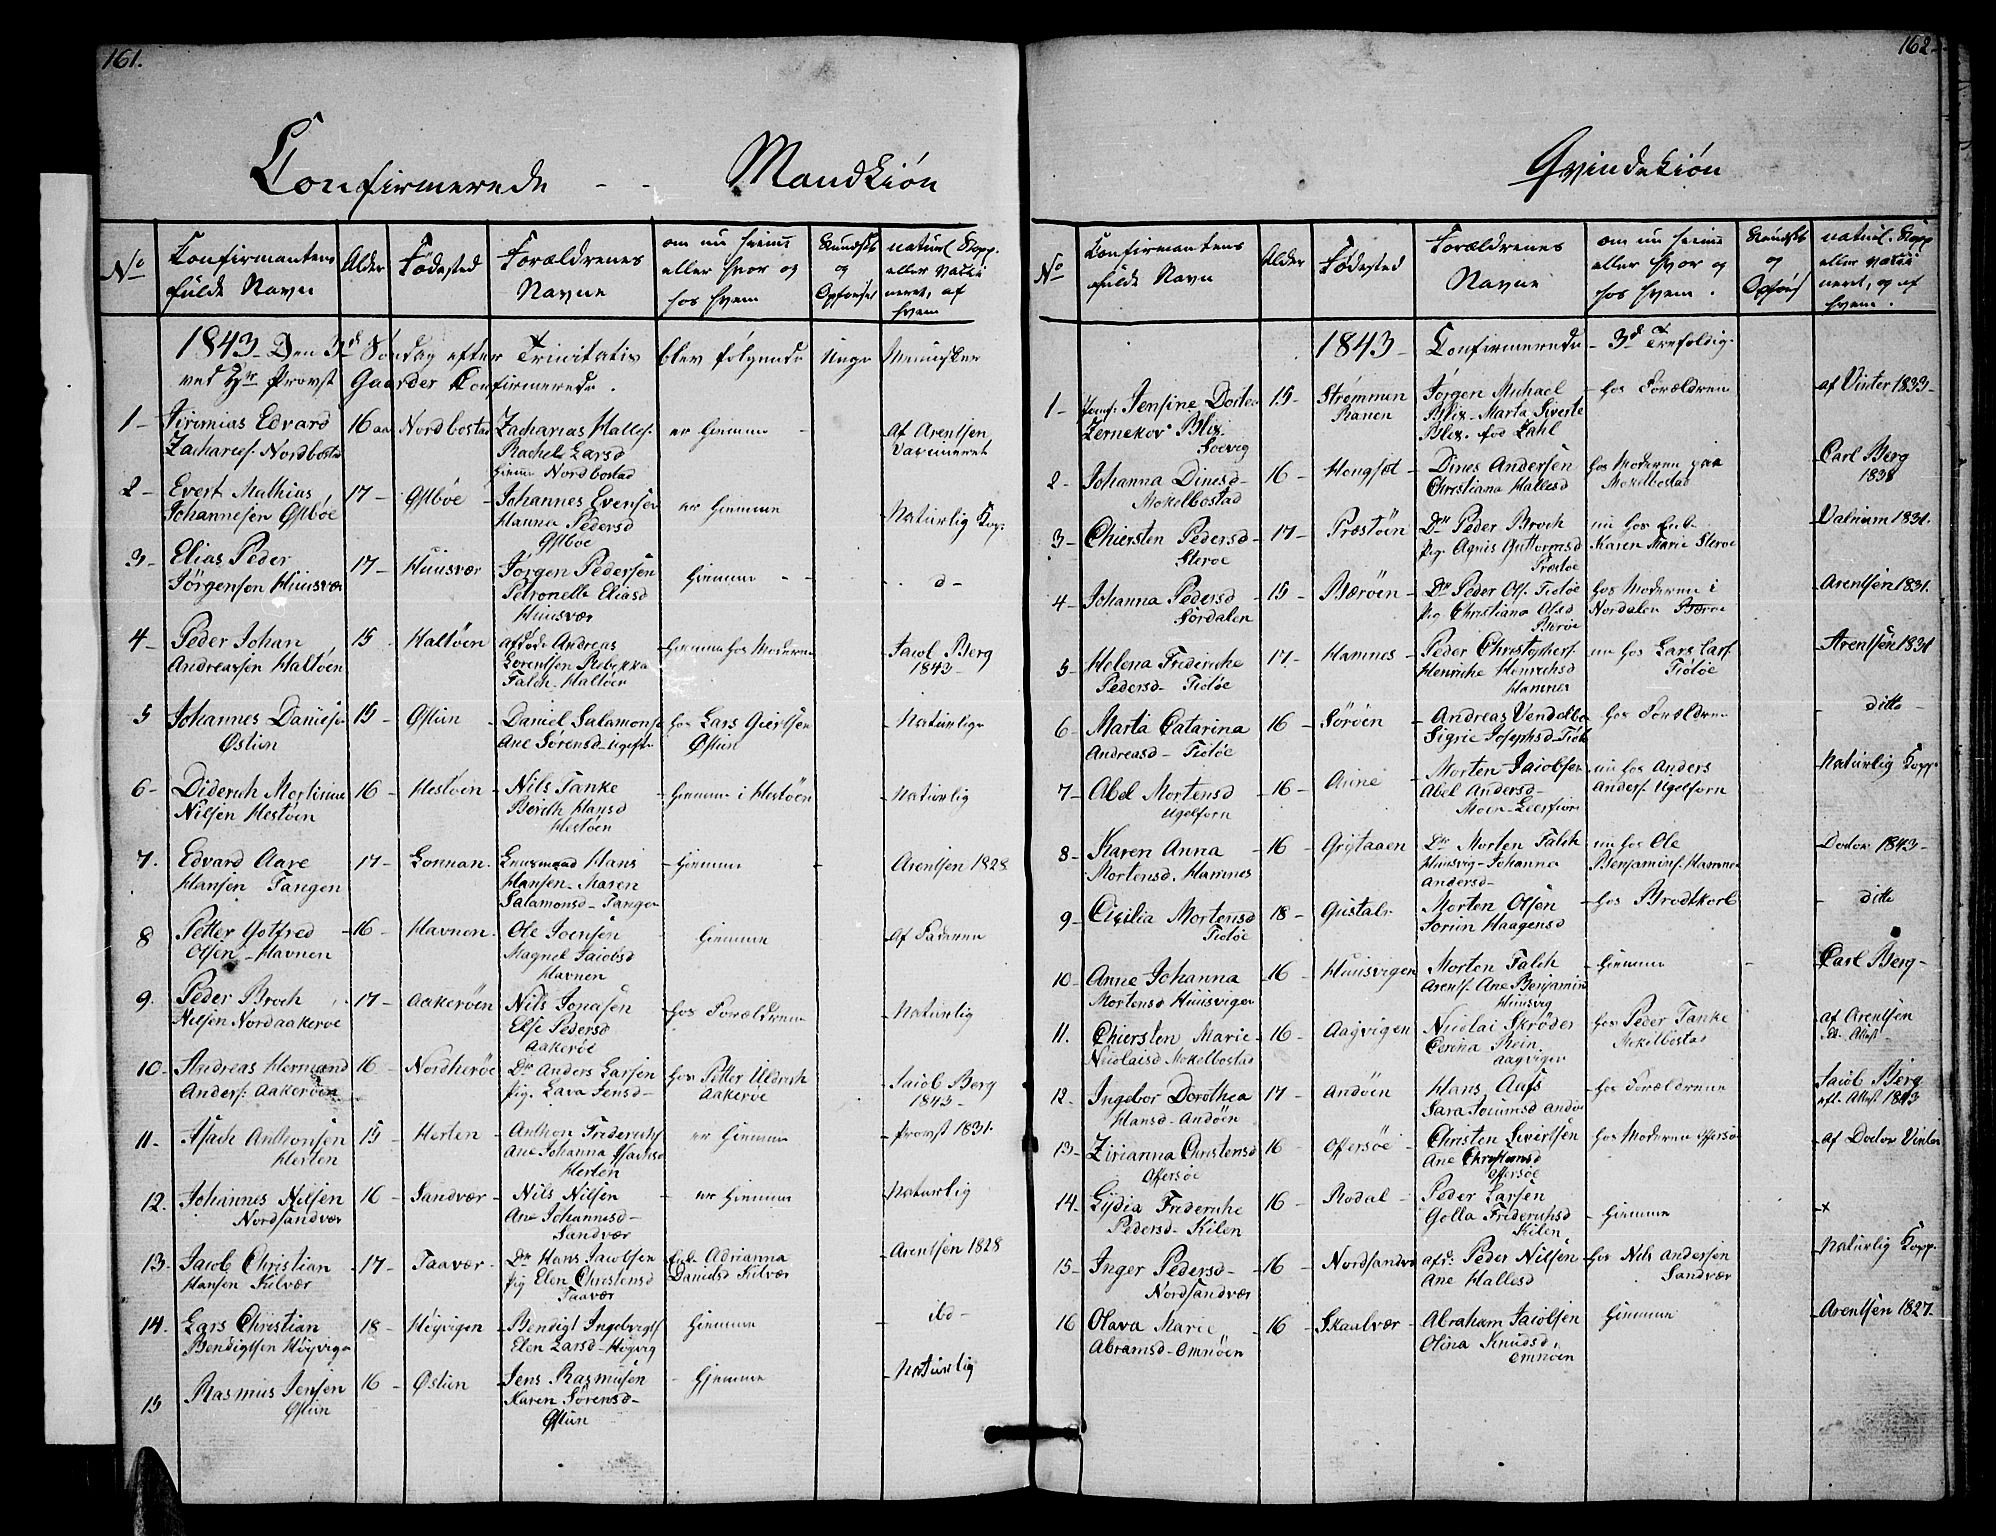 161.
Confirmerede - - Mandkiøn
No
Confirmantens
fulde Navn
Alder
Fødested
Forældrenes
Navne
om nu hieme
eller hvor og
hos hvem
Kundskb
og
Opførsel
naturl Kopp.
eller vacci
neret, af
hvem
1843. Den 3d Søndag efter Trinitatis blev følgende Unge Mennisker
ved Hr Provst Gaarder Confirmerede.
1 -
Edvard
Nordbostad
16 aar
Nordbostad
Zacharias Halles.
Rachel Larsd
hieme Nordbostad
er hieme -
af Arentsen
Vaccineret
2 -
Evert Mathias
Johannesen Østbøe
17 -
Østbøe -
Johannes Evensen
Hanna Pedersd
Østbøe
er hieme
Naturlig Kop.
3 -
Elias Peder
Jørgensen Huusvær
17 -
Huusvær
Jørgen Pedersen
Petronelle Eliasd
Huusvær
hieme - -
- d -
4 -
Peder Johan
Andreassen Haltøen
15
Haltøen
afdøde Andreas
Lorentsen Rebekka
Falch - Haltøen
hieme hos Moderen
Jacob Berg
1843 -
5
Johannes Daniels.
Østun
15 -
Østun
Daniel Salamons.
Ane Sørensd -
hos Lars Giertsen
Østun
Naturlige
6 -
Diderich Mortinus
Nilsen Hestøen
16 -
Hestøen
Nils Tanke
Berith Hansd
Hestøen
hieme i Hestøen
Naturlig
7.
Edvard Aare
Hansen Tangen
17 -
Hans
Hansen - Maren
Salamonsd - Tangen
hieme
Arentsen 1828
8
Petter Gotfred
Olsen - Havnen
16 -
Havnen.
Ole Joensen
Magnel Jacobsd
Havnen
hieme
af Faderen
9.
Peder Broch
Nilsen Nordaakerøe
17 -
Aakerøen
Nils Jonasen
Else Pedersd
Aakerøe
hos Forældrene
Naturlig
10 -
Andreas Hermand
Anders. Aakerøen
16 -
Nordherøe
Anders Larsen
Pig. Lava Jensd -
hos Petter Uldrich
Aakerøe
Jacob Berg
1843 -
11 -
Isach Anthonsen
Herten
15 -
Herten
Anthon Friderichs
Ane Johanna Isachsd
Herten
er hieme
Provst 1831.
12.
Johannes Nilsen
Nordsandvær
16 -
Sandvær -
Nils Nilsen
Ane Johannesd -
Sandvær
er hieme
Naturlig
13 -
Jacob Christian
Hansen Kilvær
17 -
Taavær -
Hans Jacobsen
Pig Elen Christensd
Taavær
Enk. Adrianna
Danielsd Kilvær
Arentsen 1828
14.
Lars Christian
Bendigtsen Høgvigen
18 -
Høgvigen
Bendigt Ingebrigts
Elen Larsd - Høgvig
hieme
ibd -
15
Rasmus Jensen
Østun
16 -
Østun
Jens Rasmusen
Karen Sørensd -
Østun
hjemme
Naturlig
162
Qvindekiøn
No
Confirmantens
fulde Navn
Alder
Fødested
Forældrenes
Navne
om nu hieme
eller hvor og
hos hvem.
Kundskb
og
Opførs
naturl. Kopp
eller vacci
neret, og af
hvem.
1843 - Confirmerede - 3d Trefoldig.
1 -
Jomf. Jensine
Zernekov Blix.
15 -
Strømmen
Ranen
Jørgen Michael
Blix - Marta Siverte
Blix. fød Zahl
hos Forældrene
af Vinter 1833 -
2 -
Johanna Dinesd -
Mokelbostad
16 -
Dines Andersen
Christiana Hallesd
hos Moderen paa
Mokelbostad
Carl Berg
1838
3 -
Chiersten Pedersd -
Sterøe
17 -
Præstøen
Peder Broch
Pig. Agnis Guttormsd
Præstøe
nu hos Enk.
Karen Marie Sterøe
1831.
4 -
Johanna Pedersd
Sørdalen
15 -
Bærøen
Peder Ols. Tiøtøe
Pig Christiana Olsd
Bærøe
hos Moderen i
Nordalen Bærøe
Arentsen 1831.
5 -
Helena Frideriche
Pedersd - Tiøtøe
17 -
Hamnes -
Peder Christophers
Henriche Henrichsd
Hamnes
nu hos Lars Lars
Tiøtøe
Arentsen 1831
6 -
Marta Catarina
Andreasd - Tiøtøe
16 -
Sørøen
Andreas Vendelbo
Sigrie Josephsd - Tiøtøe
hos Forældrene
- ditto -
7 -
Abel Mortensd
Ugelforn
16 -
Morten Jacobsen
Abel Andersd -
Moen -
nu hos Anders
Anders. Ugelforn
Naturlig Kopp.
8 -
Karen Anna
Mortensd. Hamnes
16 -
Grytaaen
Morten Falch
Huusvig - Johanna
Andersd -
nu hos Ole
Benjamins. Hamnes
Doctor 1843 -
9 -
Cicilia Mortensd
Tiøtøe
18 -
Morten Olsen
Haagensd
hos Brodtkorb
- ditto
10 -
Anne Johanna
Mortensd Huusvigen
16 -
Huusvigen
Morten Falch
Arents. Ane Benjamin
Huusvig
hieme
Carl Berg -
11.
Chiersten Marie -
Nicolaisd Mokelbostad
16 -
Aagvigen
Nicolai Skrøder
Rein
Aagvigen
hos Peder Tanke
Mokelbostad
af Arentsen
12 -
Ingebor Dorothea
Hansd - Andøen
17 -
Andøen
Hans
Sara
Andøe
hos Forældrene
Jacob Berg
Attest 1843
13 -
Zirianna Christensd
Offersøe
16 -
Offersøe -
Christen Sivertsen
Ane Christiansd
Offersøe
hos Moderen Offersøe
af Doctor Vinter
14 -
Lydia Frideriche
Pedersd - Kilen
16 -
Rødal -
Peder Larsen
Golla Friderichsd
Kilen
- hieme
- x
15 -
Inger Pedersd -
Nordsandvær
16 -
Nordsandvær
afd. Peder Nilsen
Ane Hallesd
hos Nils Andersen
Sandvær
Naturlig Kopp.
16
Olava Marie
Abramsd - Omnøen
16 -
Skaalvær -
Abraham Jacobsen
Olina Knudsd.
Omnøen
hieme
Arentsen 1827.